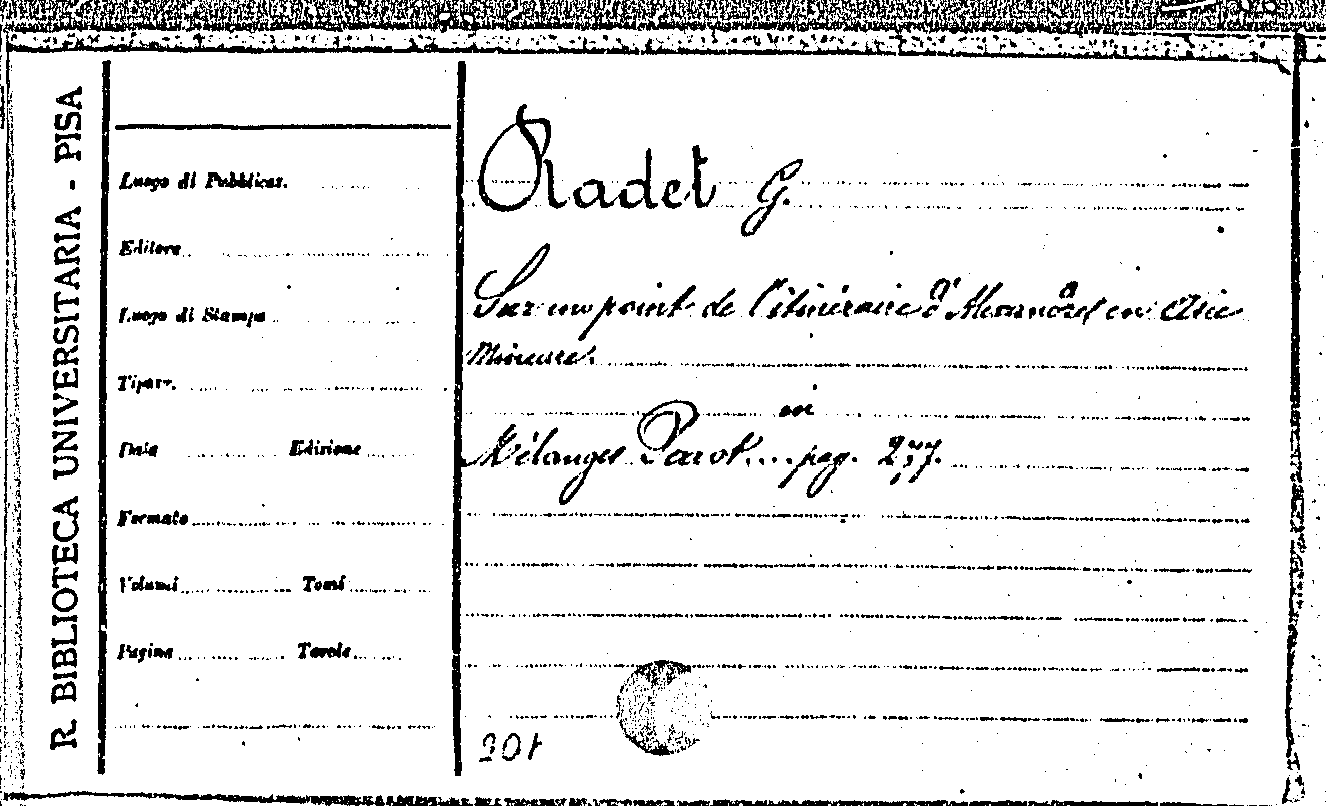 R. BIBLIOTECA UNIVERSITARIA - PISA
Luogo di Pubblicaz.
Editore
Luogo di Stampa
Tipogr.
Data Edizione
Formato
Volumi Tomi
Pagine Tavole
Radet G.
Sur un point de l'itinéraire d'Alexandre en Asie
Mineure.
in
Mélanges Perrot.... pag. 277.